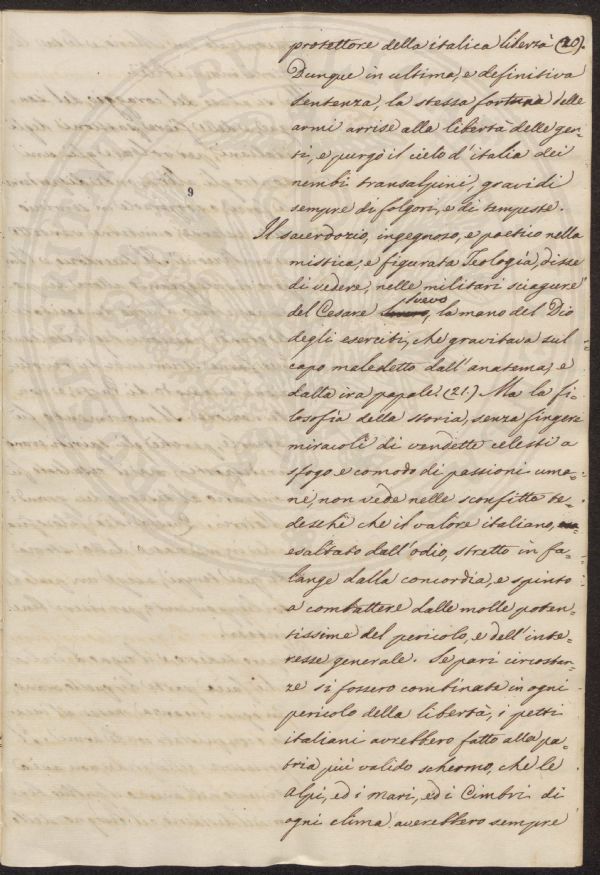 protettore della italica libertà (20).
Dunque in ultima, e definitiva
sentenza, la stessa fortuna delle
armi arrise alla libertà delle gen=
ti, e purgò il cielo d'italia dei
nembi transalpini, gravidi
sempre di folgori, e di tempeste.
9
Il sacerdozio, ingegnoso, e poetico nella
mistica, e figurata Teologia, disse
di vedere, nelle militari sciagure
svevo
del Cesare, la mano del Dio
degli eserciti, che gravitava sul
capo maledetto dall'anatema, e
dalla ira papale (21.) Ma la fi=
losofia della storia, senza fingere
miracoli di vendette celesti a
sfogo e comodo di passioni uma=
ne, non vede nelle sconfitte te=
desche che il valore italiano,
esaltato dall'odio, stretto in fa=
lange dalla concordia, e spinto
a combattere dalle molle poten=
tissime del pericolo, e dell'inte=
resse generale. Se pari circostan=
ze si fossero combinate in ogni
pericolo della libertà, i petti
italiani avrebbero fatto alla pa=
tria più valido schermo, che le
alpi, ed i mari, ed i Cimbri di
ogni clima averebbero sempre